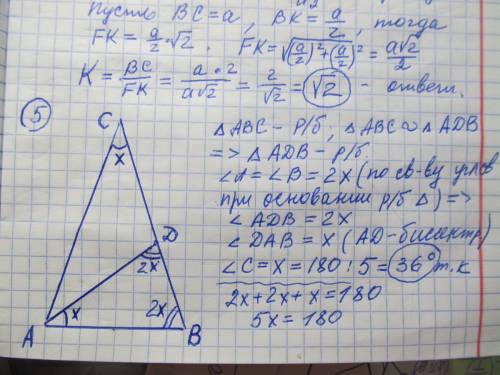 Пусть BC=a, BK=a/2, тогда
FK=a/2·√2. FK=√((a/2)²+(a/2)²)=a√2/2
K=BC/FK=a·2/a√2=2/√2=√2 - ответ.
5
C
x
D
2x
x
2x
A
B
△ABC - р/б, △ABC∾△ADB
=> △ADB - р/б.
∠A=∠B=2x (по св-ву углов
при основании р/б △) =>
∠ADB=2x
∠DAB=x (AD-бисектр)
∠C=x=180:5=36° т.к
2x+2x+x=180
5x=180